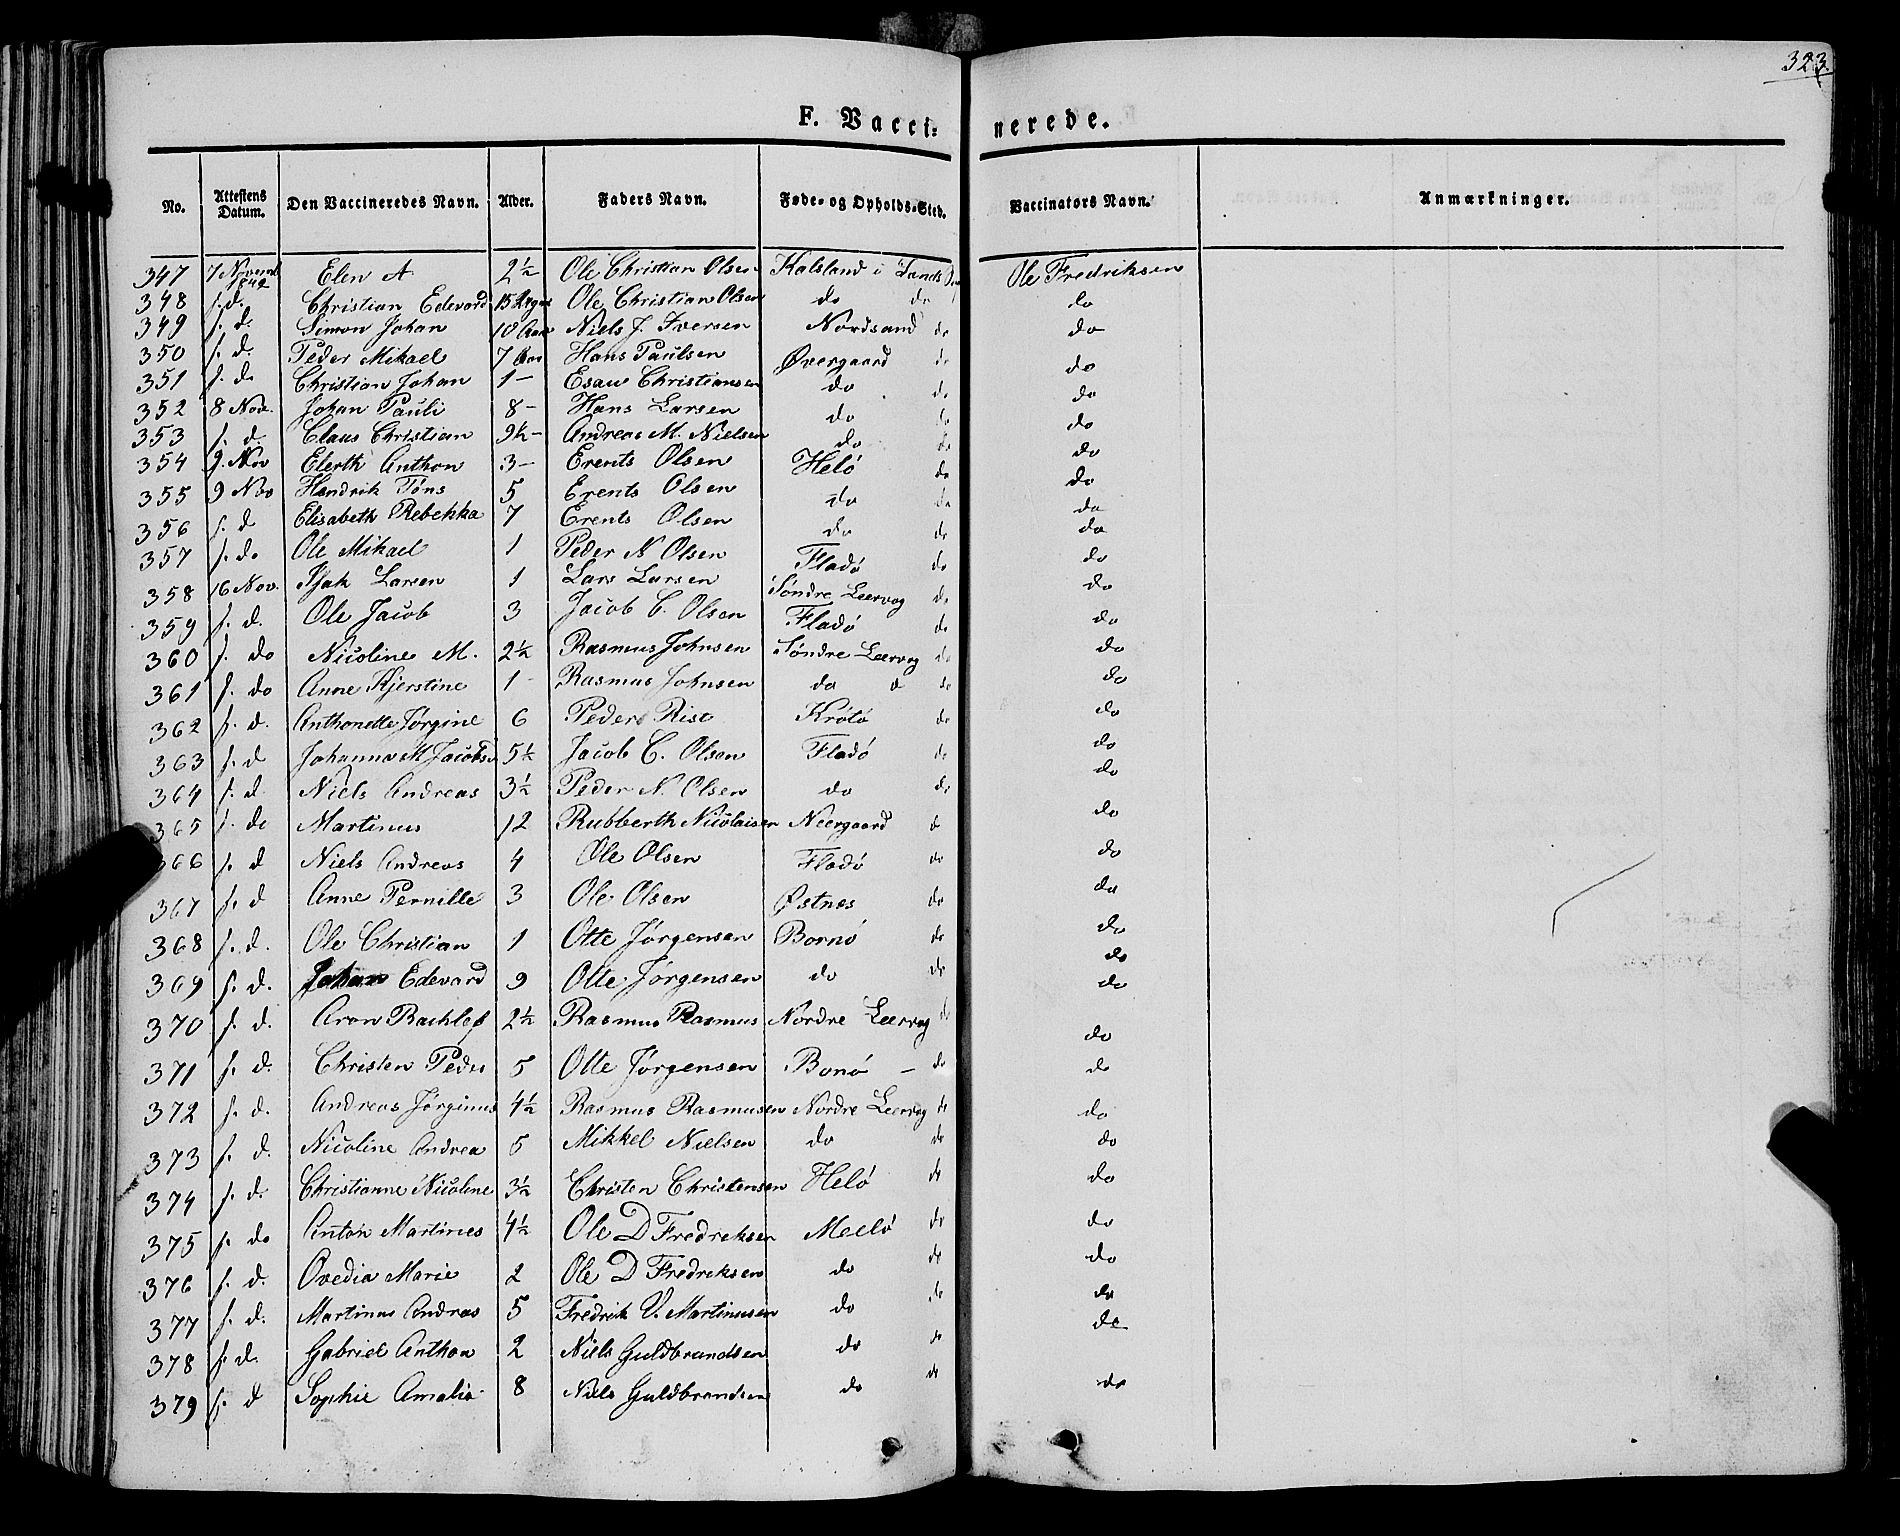 323.
F. Vacci: nerede.
No. Attestens Datum. Den Vaccineredes Navn. Alder. Faders Navn. Føde- og Opholds-Sted. Vaccinators Navn. Anmærkninger.
347 7 Elen A 2½ Ole Christian Olsen Kalsland i Ole Fredriksen
348 s. d. Christian Edevard 15 Ole Christian Olsen do do do
349 s. d. Simon Johan 10 Aar Niels J. Iversen Nordsand do do
350 s. d. Peder Mikael 7 Aar Hans Paulsen Øvergaard do do
351 s. do Christian Johan 1 - Esau Christiansen do do do
352 8 Nov. Johan Pauli 8 - Hans Larsen do do do
353 s. d. Claus Christian 9½ - Andreas M. Nielsen do do do
354 9. Nov Elerth Anthon 3 - Erents Olsen Helö do do
355 9 Nov Hendrik Töns 5 Erents Olsen do do do
356 s. d Elisabeth Rebekka 7 Erents Olsen do do do
357 s. do Ole Mikael 1 Peder N Olsen Fladö do do
358 16 Nov. Isak Larsen 1 Lars Larsen Söndre Leervog do do
359 s. d. Ole Jacob 3 Jacob C. Olsen Fladö do do
360 s. do Nicoline M. 2½ Rasmus Johnsen Söndre Leervog do do
361 s. do Anne Kjerstine 1 - Rasmus Johnsen do d do do
362 s. d. Anthonette Jörgine 6 Peder Rist Krötö do do
363 s. d Johanna M Jacobsd 5½ Jacob C. Olsen Fladö do do
364 s. d Niels Andreas 3½ Peder N. Olsen do do do
365 s. do Martinus 12 Rubberth Nicolaisen Neergaard d do
366 s. d Niels Andreas 4 Ole Olsen Fladö do do
367 s. d Anne Pernille 3 Ole Olsen Østnes do do
368 s. d. Ole Christian 1 Otte Jörgensen Bornö do do
369 s. d. Johan Edevard 9 Otte Jörgensen do do do
370 s. d. Aron Rachlef 2½ Rasmus Rasmus Nordre Leervog do do
371 s. d. Christen Peder 5 Otte Jörgensen Bonö - do do
372 s. d. Andreas Jörginus 4½ Rasmus Rasmusen Nordre Leervog do do
373 s. d. Nicoline Andrea 5 Mikkel Nielsen do do do
374 s. d. Christianne Nicoline 3½ Christen Christensen Helö do do
375 s. do Anton Martines 4½ Ole D Fredreksen Meelö do do
376 s. d. Ovedia Marie 2 Ole D Fredreksen do do do
377 s. d. Martinus Andreas 5 Fredrik V. Martinusen do do do
378 s. d. Gabriel Anthon 2 Niels Guldbrandsen do do do
379 s. d Sophie Amalia 8 Niels Guldbrandsen do do do